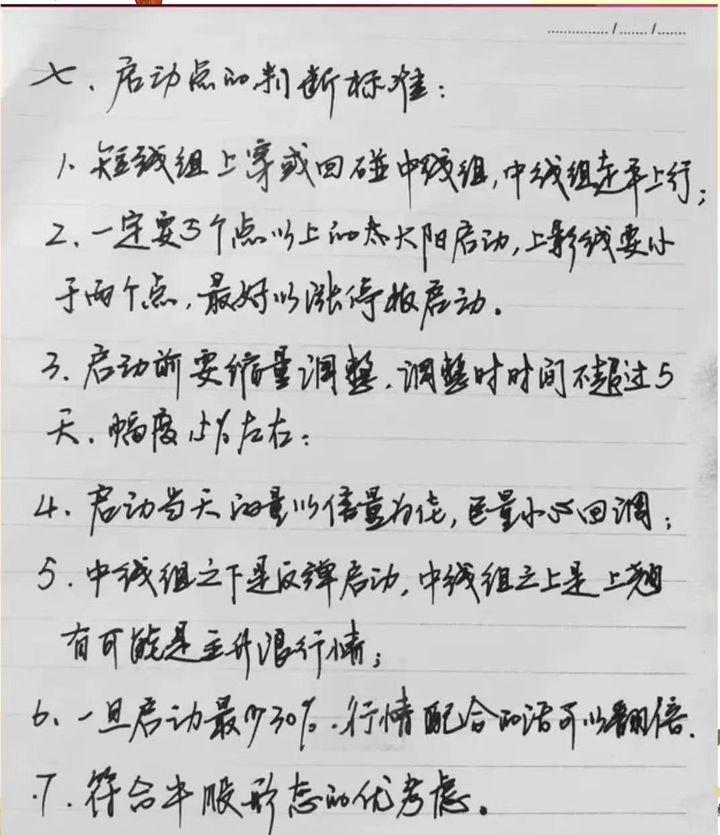 七、启动点的判断标准：
1、短线组上穿或回碰中线组，中线组走平上行；
2、一定要5个点以上的大阳启动，上影线要小
于两个点，最好以涨停板启动。
3、启动前要缩量调整，调整时时间不超过5
天、幅度15%左右；
4、启动当天的量以倍量为佳，巨量小心回调；
5．中线组之下是反弹启动，中线组之上是上翘
有可能是主升浪行情；
6、一旦启动最少30%．行情配合的话可以翻倍．
7．符合牛股形态的优考虑。